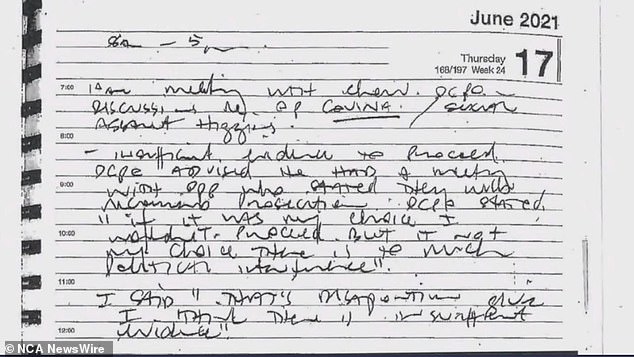 June 2021
Thursday 17
168/197 Week 24
8am - 5pm
7:00
10am meeting with Chew. DCPO
Discussions re OP COVINA. / sexual
Assault Higgins.
8:00
- insufficient evidence to proceed.
DCPO advised he had a meeting
9:00
with DPP who stated they will
recommend prosecution. DCPO stated
"if it was my choice I
10:00
wouldn't proceed. But it not
my choice there is to much
political interference".
11:00
I said "That's disapointing given
I think there is insufficient
12:00
evidence"
© NCA NewsWire